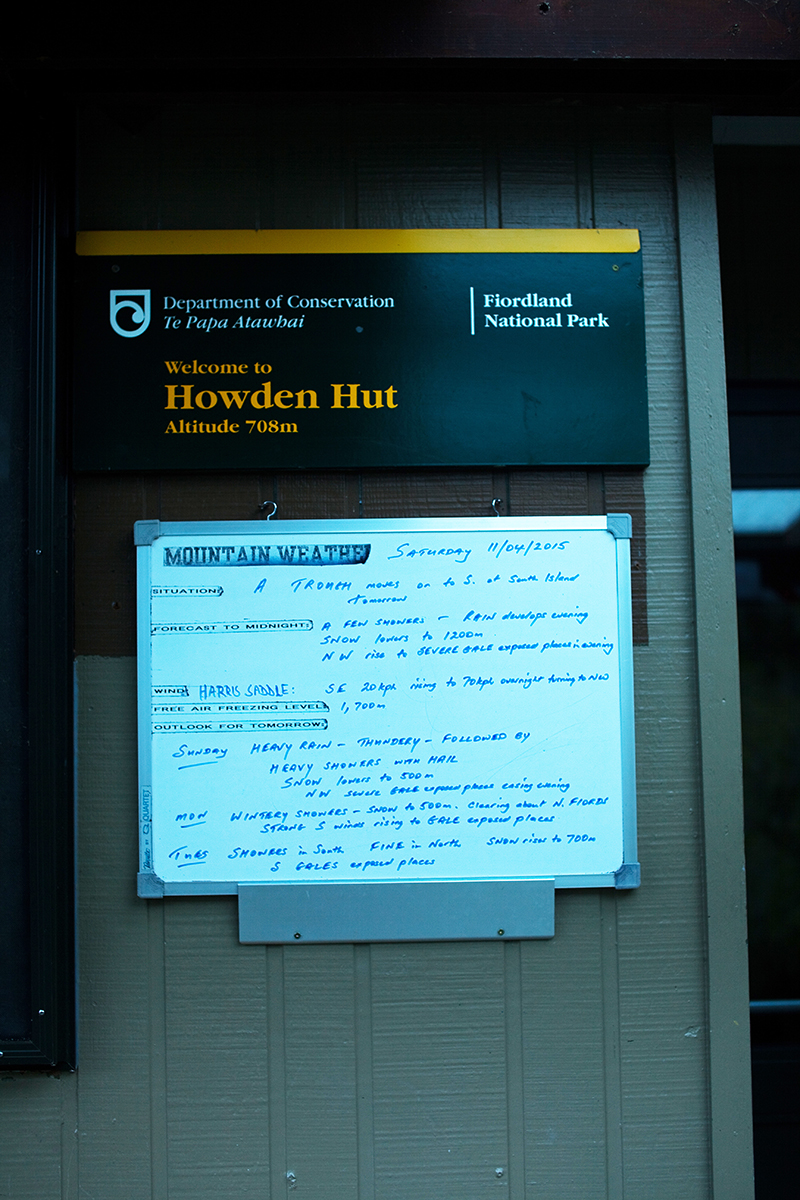 Department of Conservation
Te Papa Atawhai
Fiordland
National Park
Welcome to
Howden Hut
Altitude 708m
MOUNTAIN WEATHE SATURDAY 11/04/2015
SITUATION: A TROUGH moves on to S. of South Island
tomorrow
FORECAST TO MIDNIGHT: A FEW SHOWERS - RAIN develops evening
SNOW lowers to 1200m
NW rise to SEVERE GALE exposed places in evening
WIND: HARRIS SADDLE: SE 20kph rising to 70kph overnight turning to NW
FREE AIR FREEZING LEVEL: 1,700m
OUTLOOK FOR TOMORROW:
SUNDAY HEAVY RAIN - THUNDERY - FOLLOWED BY
HEAVY SHOWERS WITH HAIL
SNOW lowers to 500m
NW SEVERE GALE exposed places easing evening
MON WINTERY SHOWERS - SNOW to 500m. Clearing about N. FIORDS
STRONG S winds rising to GALE exposed places
TUES SHOWERS in South FINE in North SNOW rises to 700m
S GALES exposed places
QUARTET